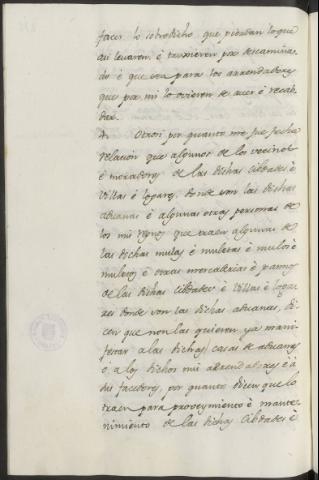 facer lo sobredicho, que pierdan lo que
asi levaren, è tuvieren por descamina-
do è que sea para los arrendadores
que por mi lo ovieren de aver è recab-
dar.
Otrosi por quanto me fue fecha
relacion que algunos de los vecinos
è moradores de las dichas Cibdades è
Villas è Logares, donde son las dichas
aduanas è algunas otras personas de
los mis regnos que traen algunas de
las dichas mulas è muletas è mulos è
muletos è otras mercadurias è pannos
de las dichas Cibdades è Villas è Loga-
res donde son las dichas aduanas, di-
cen que non las quieren, ya mani-
festar a las dichas casas de aduanas
o a los dichos mis arrendadores è à
sus facedores, por quanto dicen que lo
traen para proveymiento è mante-
nimiento de las dichas Cibdades è